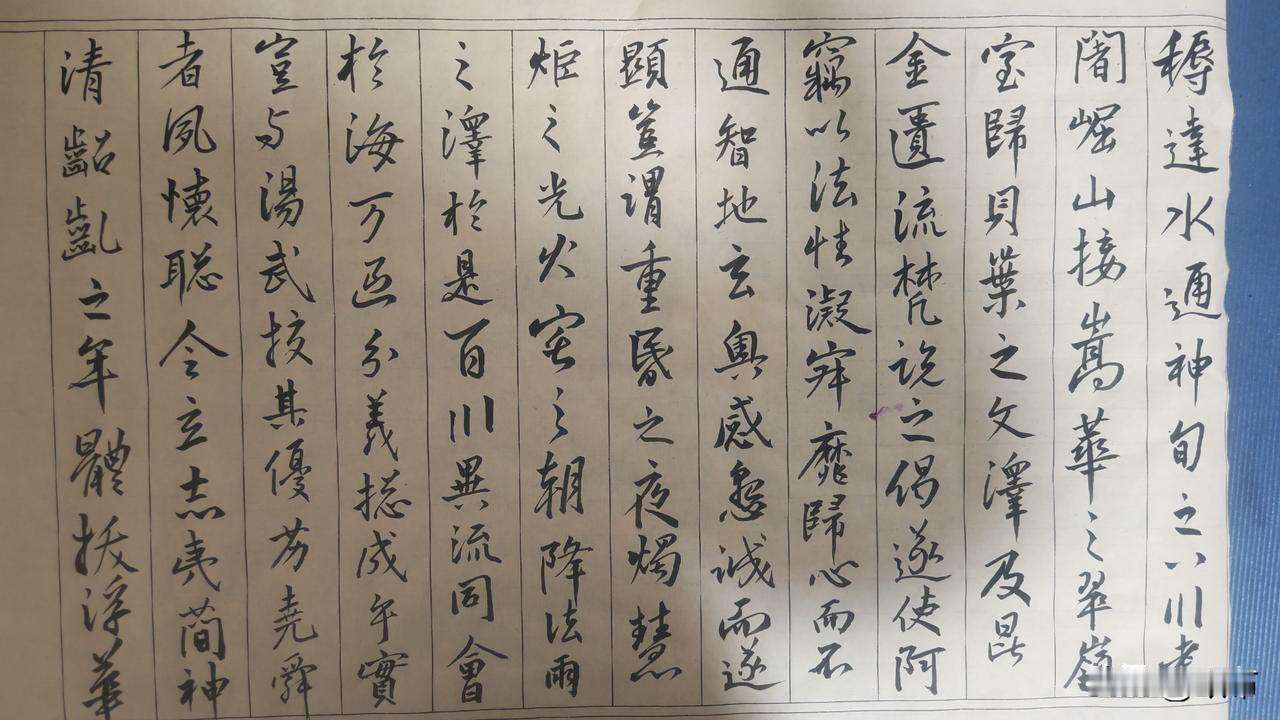 耨達水通神旬之八川耆
闍崛山接嵩華之翠嶺
室歸貝葉之文澤及昆
金匱流梵説之偈遂使阿
竊以法性凝寂靡歸心而不
通智地玄奧感懇誠而遂
顯豈謂重昏之夜燭慧
炬之光火宅之朝降法雨
之澤於是百川異流同會
於海万區分義揔成乎實
豈与湯武挍其優劣堯舜
者夙懷聡令立志夷簡神
清齠齔之年體拔浮華